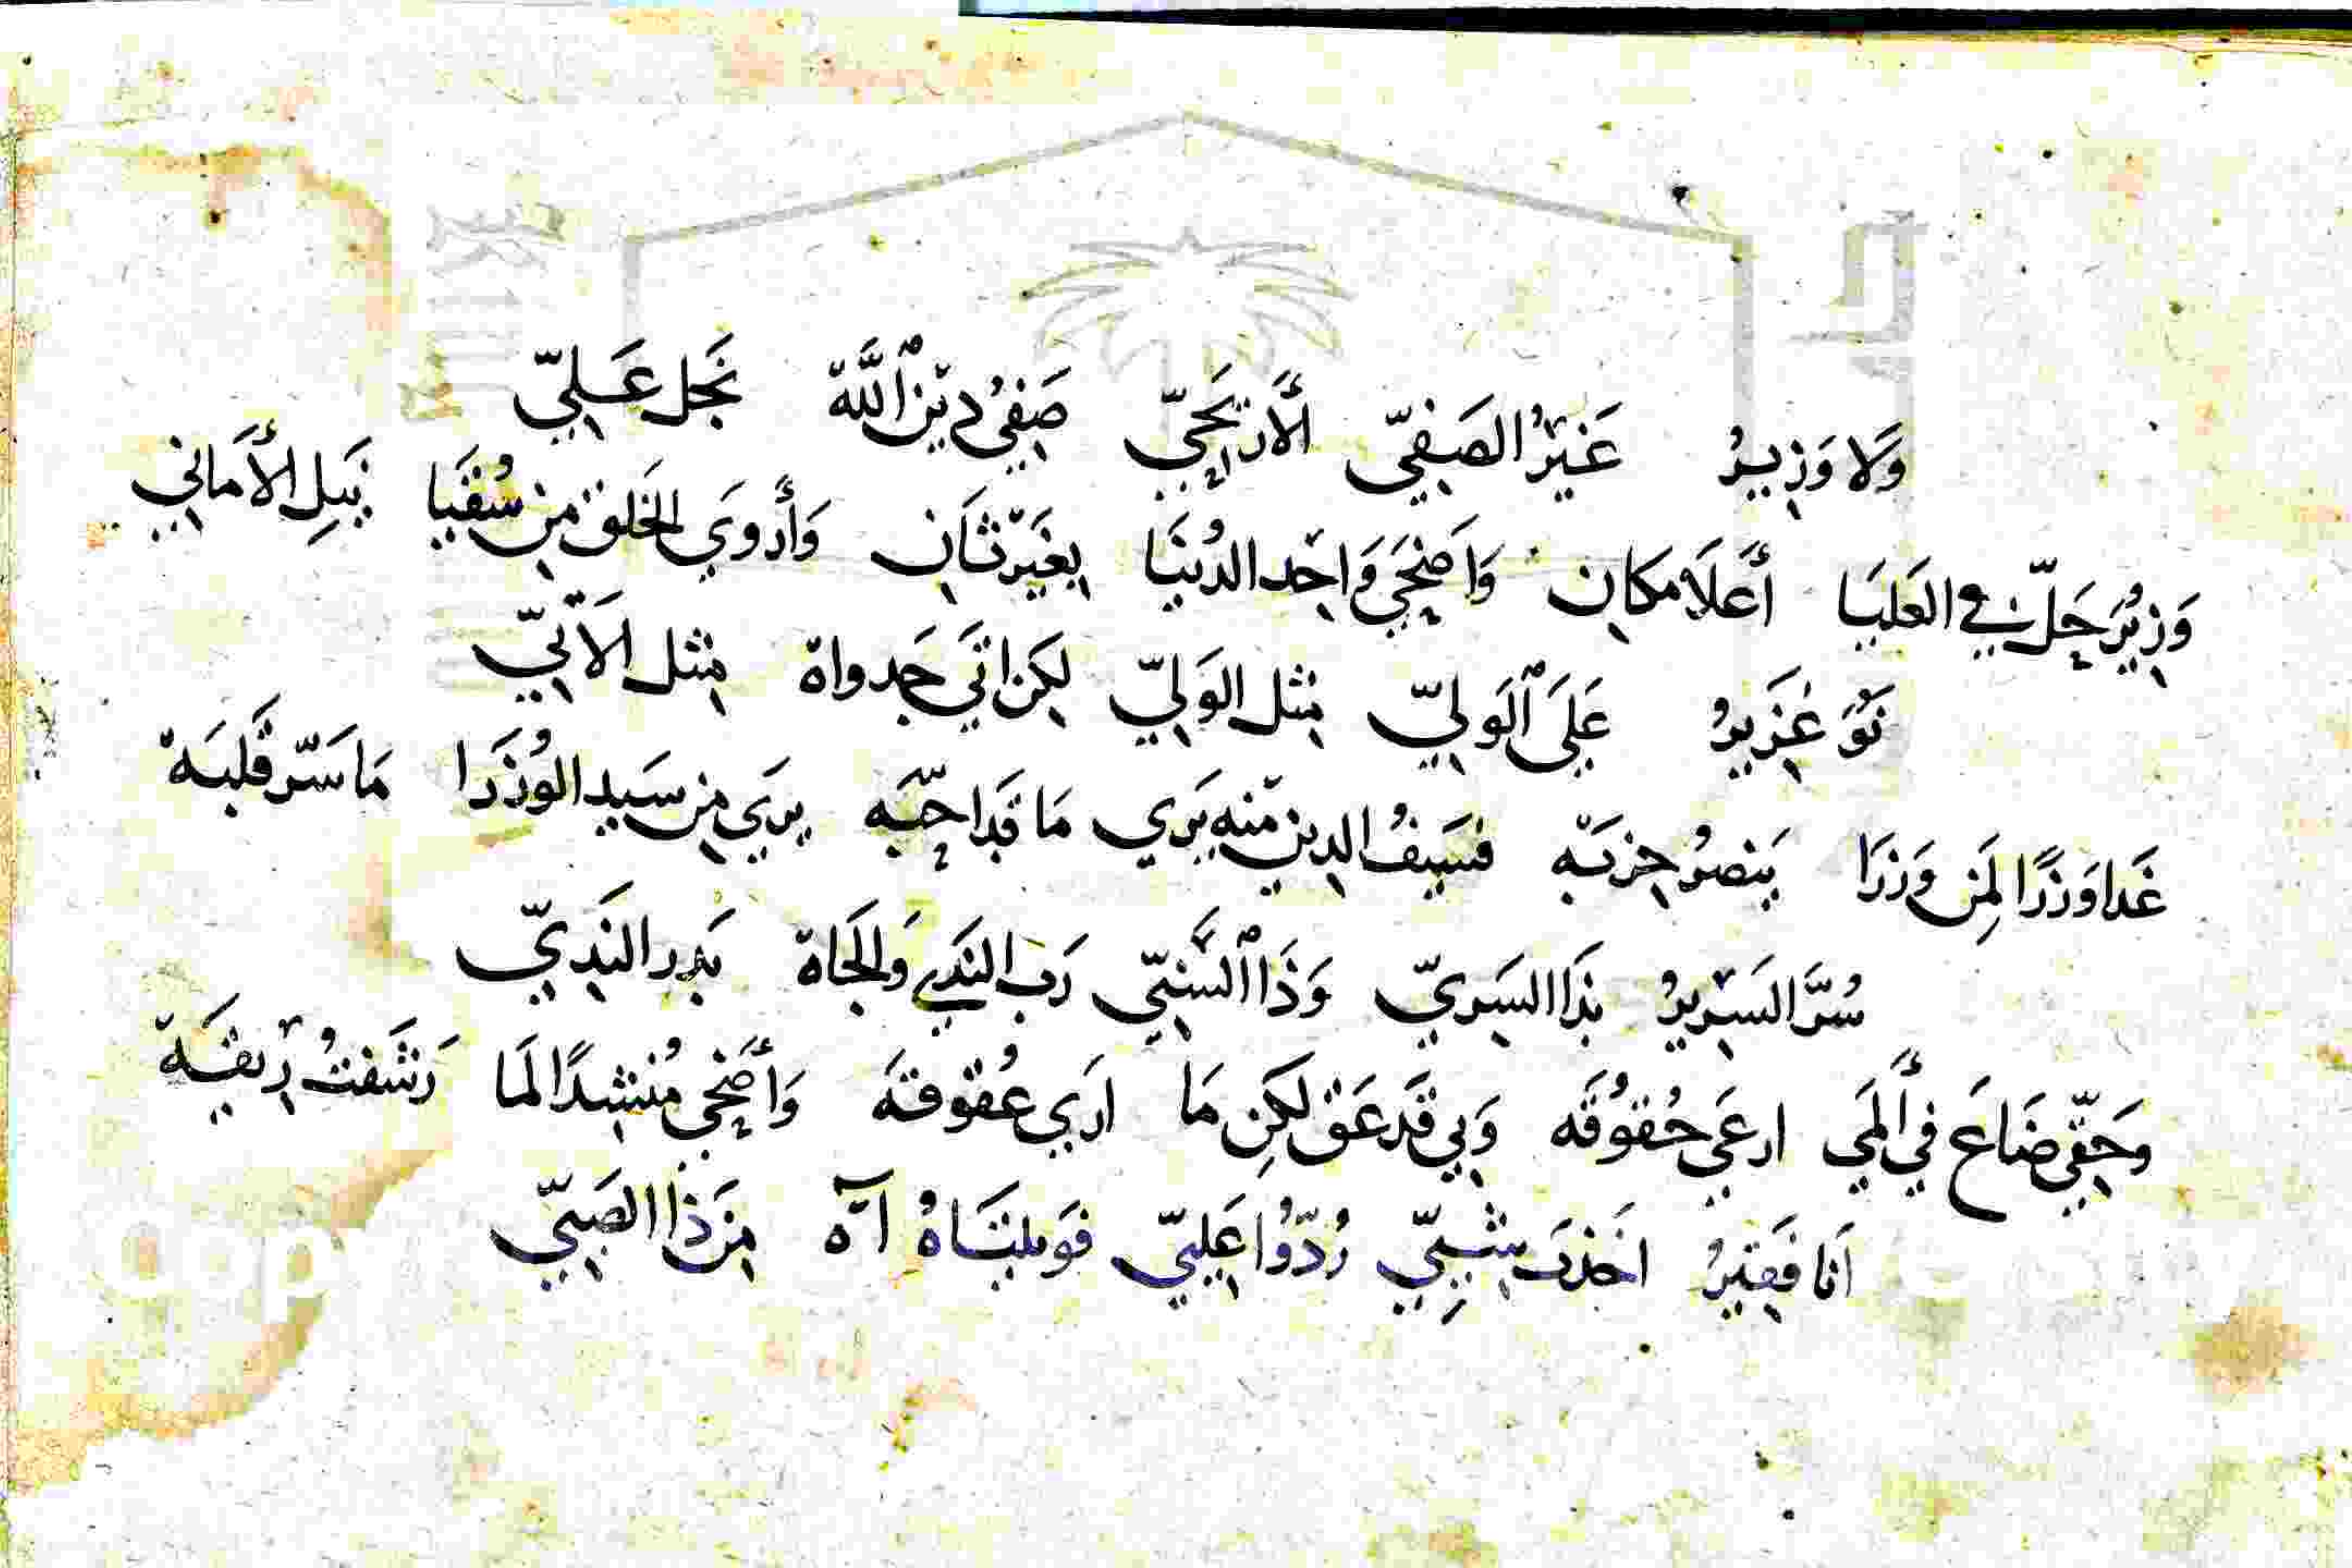 وَلا وَزِيرُ غَيْرُ الصَفِيّ الأَريَحِيّ صَفِيُ دِيْنِ اللَّه نَجل عَلِيّ
وَزِيْرُ حَلّ فِي العَليَا أَعلَا مكانِ وَاَضحَي وَاحِد الدُنيَا بِغَيْر ثَانِ وَأَروَي الخَلق مِن سُقيَا نَيلِ الأَمَاني
عَلَى الوَلِيّ مِثل الوَلِيّ لكِن اتَي جَدواه مِثل الَاتِيّ
غَدا وَزرًا لِمَن وَزرَا يَنصرُ حِزبَه فسَيفُ الدين مِنه يَرَي مَا قَد احَبّه يرَي مِن سَيدِ الوُزَرا مَا سَرّ قَلبَه
سُرَّ السَرِيرُ بذَا السَرِيّ وَذَا السَّنِيّ رَب النَدَي وَالجَاه بَدر النَدِيّ
وَحَقِّي ضَاعَ في أَلمَي ارعَي حُقوُقَه وَبي قَد عَق لكِن مَا اري عُقوُقَه وَأَضحَي مُنشِدًا لَما رَشَفتُ رِيقَه
اَنا فَقِيرُ اخَذت شيبِّي رُدّوُا عَلِيّ فوَيلتَاهُ آه مِن ذَا الصَبِيّ